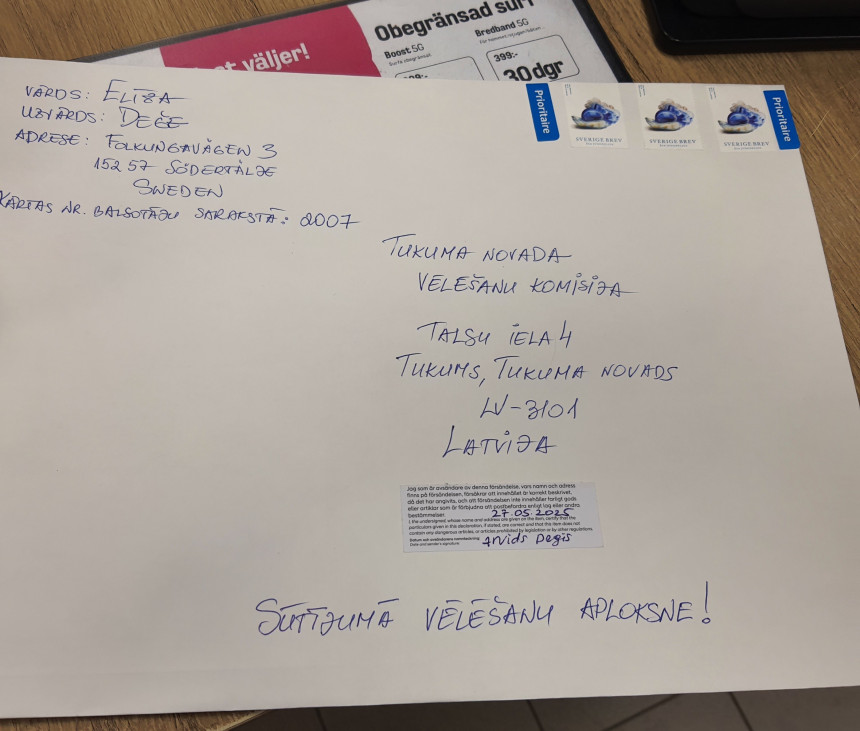 Obegränsad surf
t väljer!
Boost 5G
Surfa obegränsat
Bredband 5G
399:-
30dgr
VĀRDS: ELĪZA
UZVĀRDS: DEĢE
ADRESE: FOLKUNGAVÄGEN 3
152 57 SÖDERTÄLJE
SWEDEN
KĀRTAS NR. BALSOTĀJU SARAKSTĀ: 2007
Prioritaire
SVERIGE BREV
SVERIGE BREV
SVERIGE BREV
Prioritaire
TUKUMA NOVADA
VĒLĒŠANU KOMISIJA
TALSU IELA 4
TUKUMS, TUKUMA NOVADS
LV-3101
LATVIJA
Jag som är avsändare av denna försändelse, vars namn och adress
finns på försändelsen, försäkrar att innehållet är korrekt beskrivet,
då det har angivits, och att försändelsen inte innehåller farligt gods
eller artiklar som är förbjudna att postbefordra enligt lag eller andra
bestämmelser.
27.05.2025
I, the undersigned, whose name and address are given on the item, certify that the
particulars given in this declaration, if stated, are correct and that this item does not
contain any dangerous articles, or articles prohibited by legislation or by other regulations.
Datum och avsändarens namnteckning
Date and sender's signature
Arvids Degis
SŪTĪJUMĀ VĒLĒŠANU APLOKSNE!